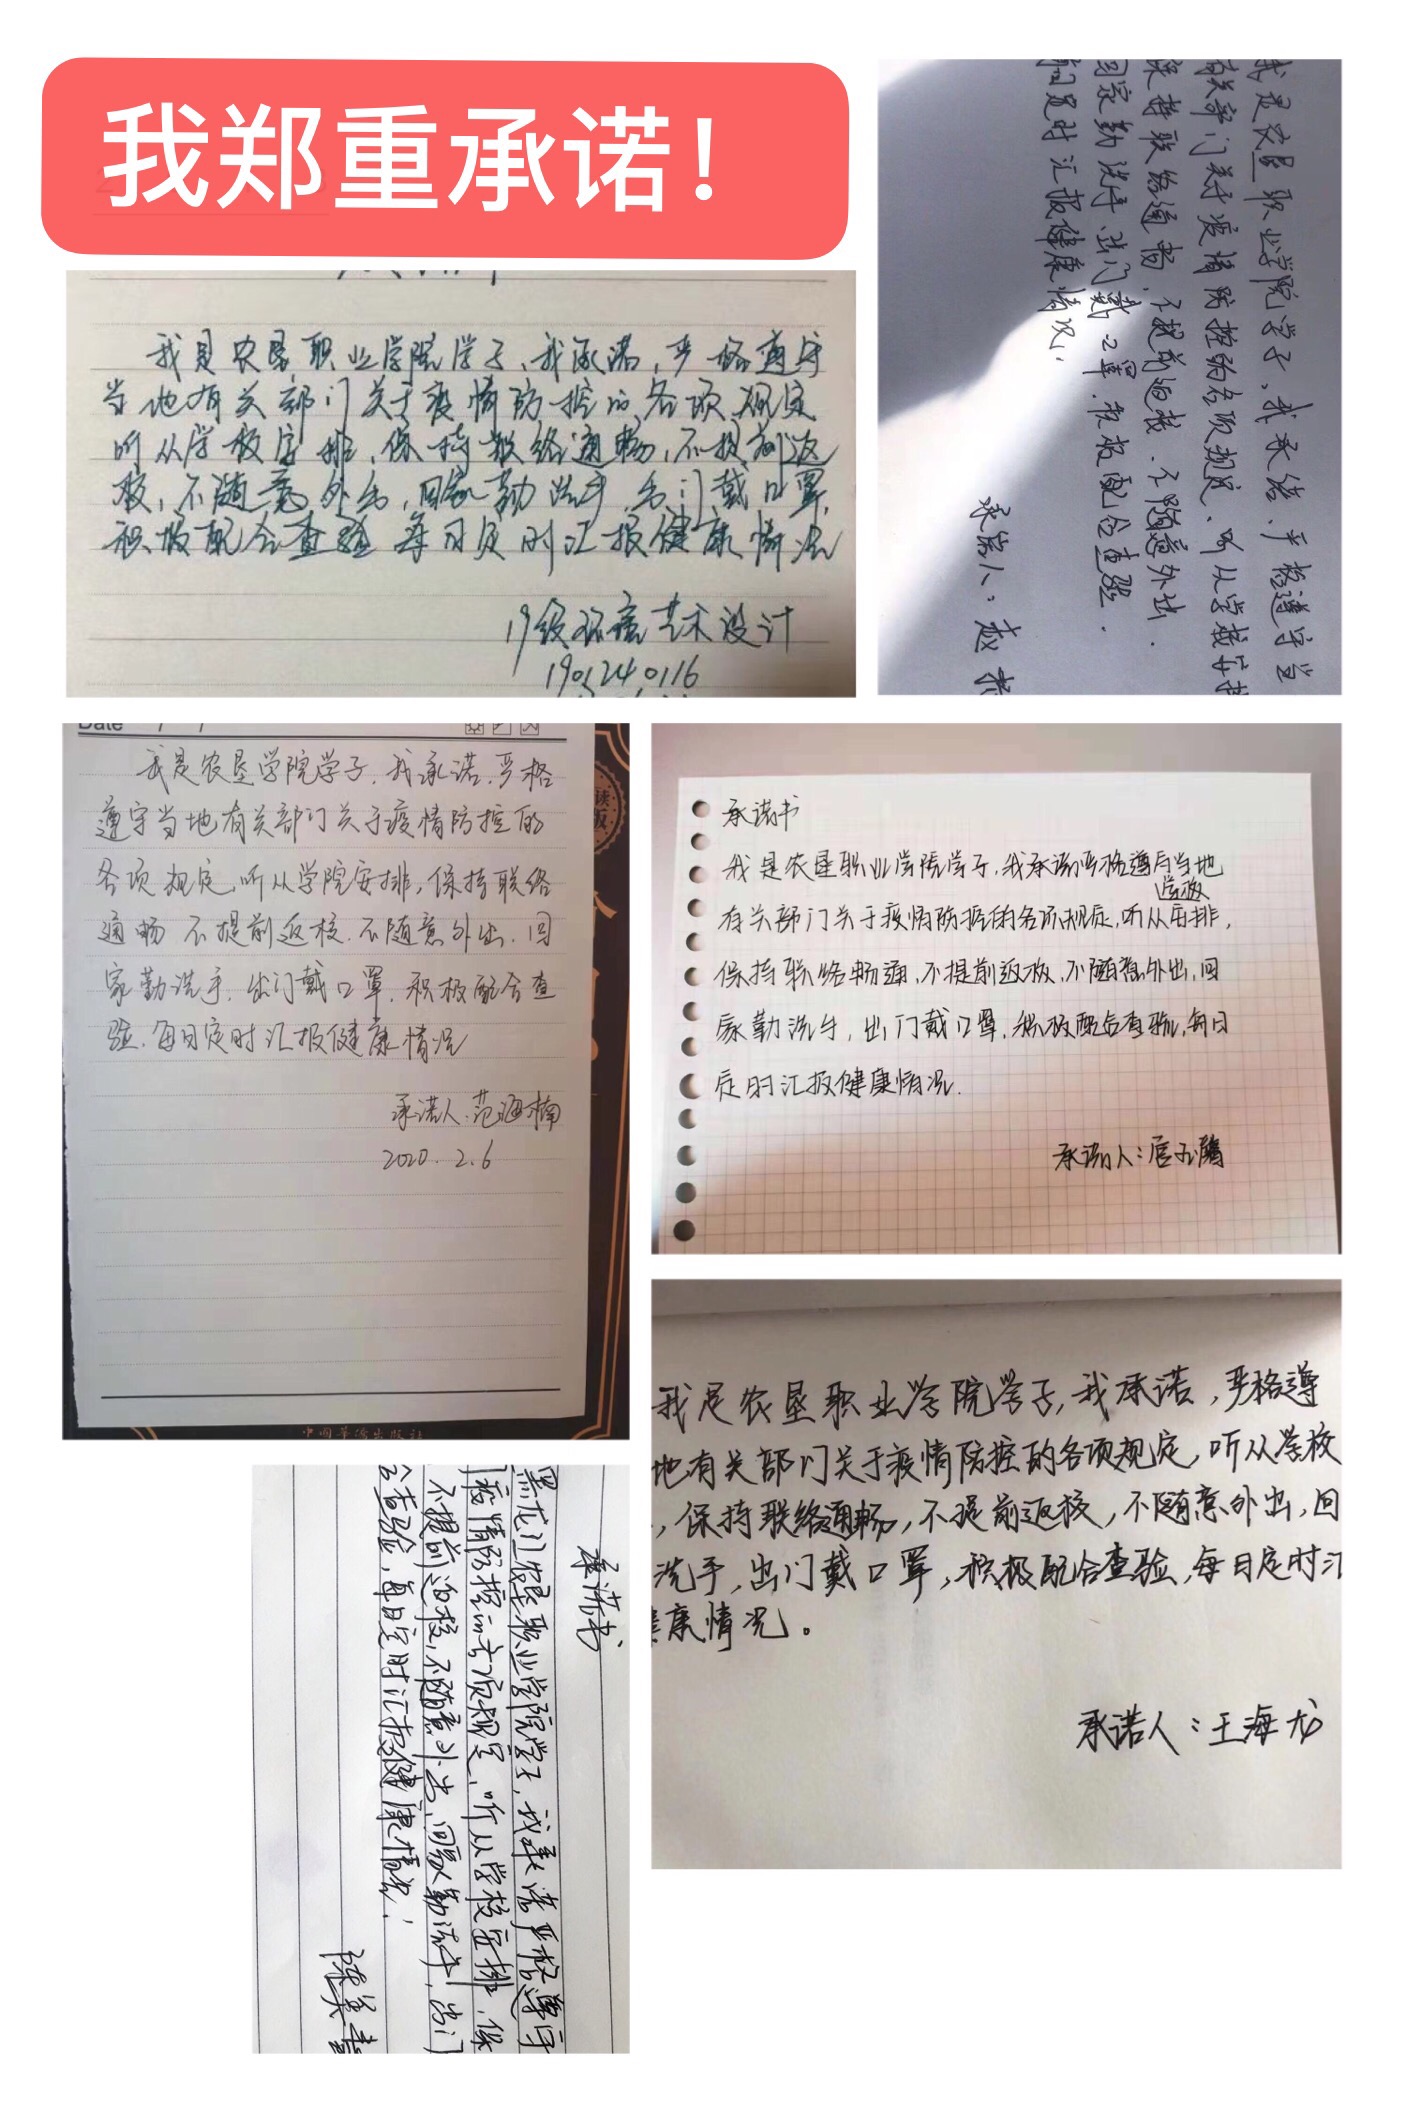 我郑重承诺！
我是农垦职业学院学子、我承诺，严格遵守
当地有关部门关于疫情防控的各项规定
听从学校安排、保持联络通畅，不提前返
校，不随意外出，回家勤洗手 出门戴口罩，
积极配合查验 每日定时汇报健康情况
19级环境艺术设计
190124 0116
我是农垦职业学院学子、我承诺、严格遵守当
有关部门关于疫情防控的各项规定、听从学校安排
保持联络通畅，不提前返校、不随意外出.
回家勤洗手、出门戴口罩.积极配合查验.
每日定时汇报健康情况.
承诺人：赵
Date / /
我是农垦学院学子.我承诺.严格
遵守当地有关部门关于疫情防控的
各项规定 听从学院安排，保持联络
通畅 不提前返校.不随意外出.回
家勤洗手.出门戴口罩.积极配合查
验.每日定时汇报健康情况
承诺人.范海楠
2020.2.6
中国华侨出版社
承诺书
我是农垦职业学院学子，我承诺严格遵守当地
学校
有关部门关于疫情防控的各项规定，听从安排，
保持联络畅通，不提前返校，不随意外出，回
家勤洗手，出门戴口罩，积极配合查验，每日
定时汇报健康情况.
承诺人：
我是农垦职业学院学子，我承诺，严格遵
地有关部门关于疫情防控的各项规定，听从学校
，保持联络通畅，不提前返校，不随意外出，回
洗手，出门戴口罩，积极配合查验，每日定时汇
健康情况。
承诺人：王海龙
承诺书
黑龙江农垦职业学院学子，我承诺严格遵守
疫情防控的各项规定，听从学校安排，保
不提前返校，不随意外出，回家勤洗手，出门
合查验，每日定时汇报健康情况！
陈美